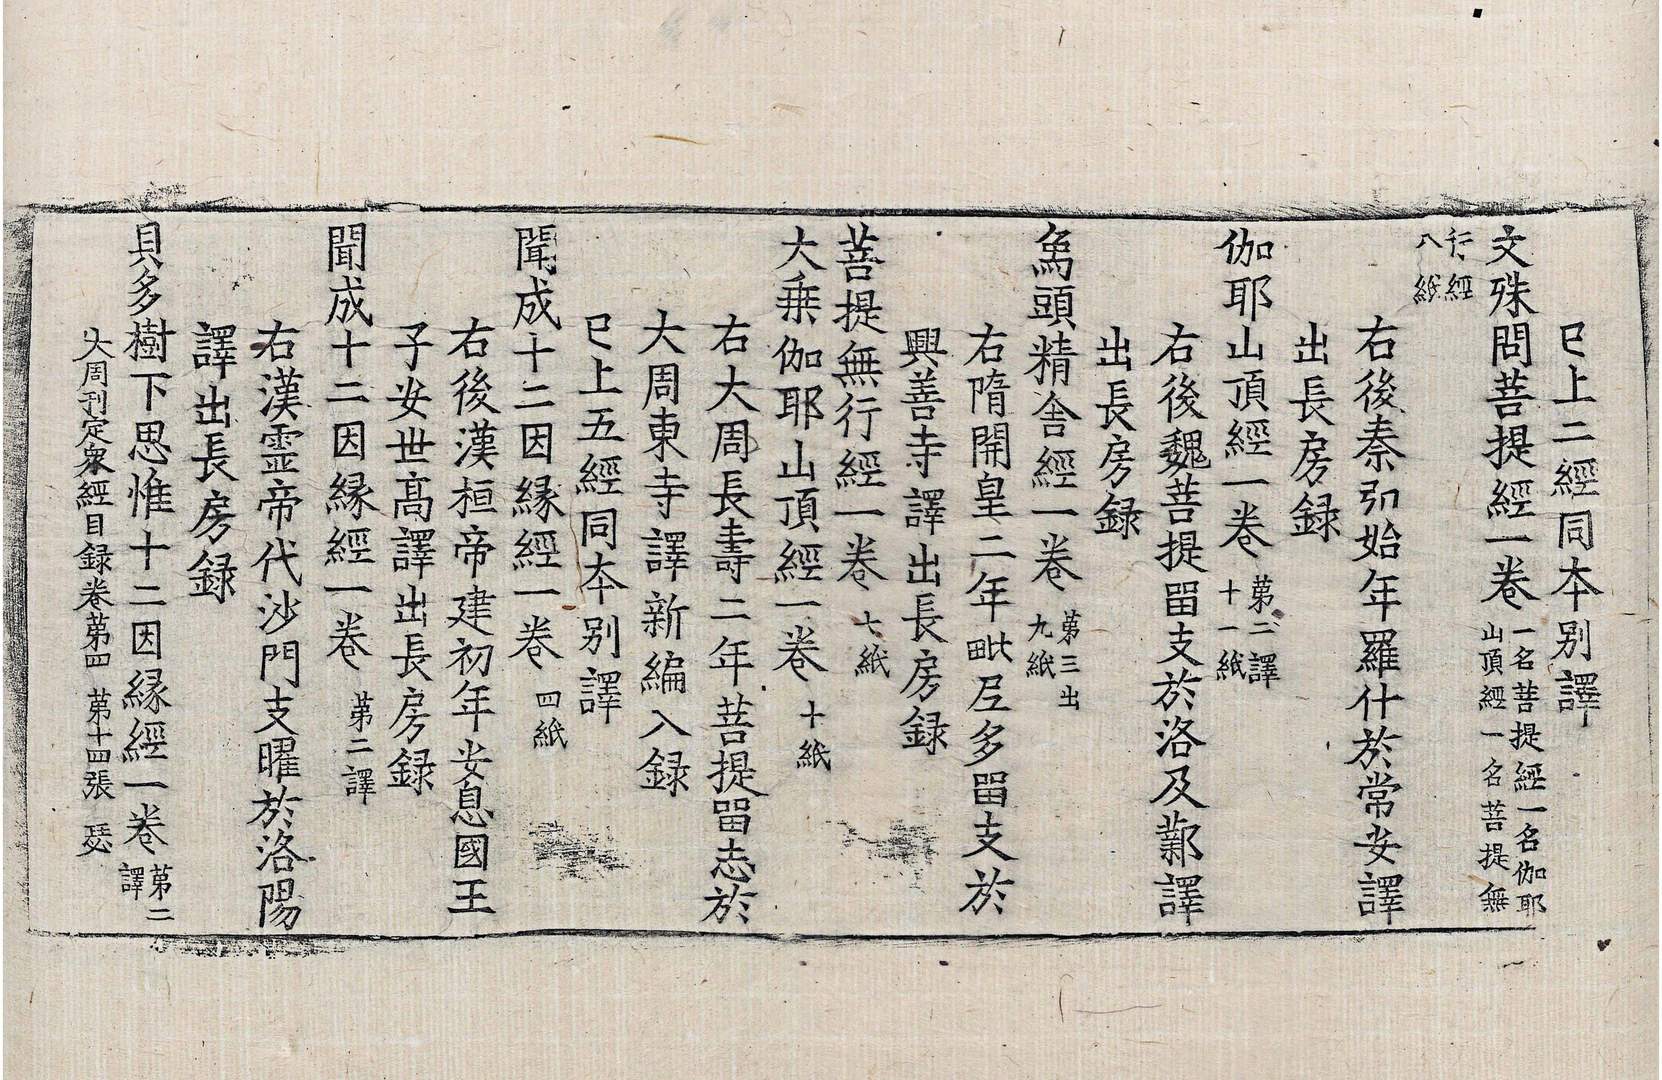 已上二經同本別譯
文殊問菩提經一卷 一名菩提經一名伽耶
山頂經一名菩提無
行經
八紙
右後秦弘始年羅什於常安譯
出長房錄
伽耶山頂經一卷 第二譯
十一紙
右後魏菩提留支於洛及鄴譯
出長房錄
象頭精舍經一卷 第三出
九紙
右隋開皇二年毗尼多留支於
興善寺譯出長房錄
菩提無行經一卷 七紙
大乘伽耶山頂經一卷 十紙
右大周長壽二年菩提留志於
大周東寺譯新編入錄
已上五經同本別譯
聞成十二因緣經一卷 四紙
右後漢桓帝建初年安息國王
子安世高譯出長房錄
聞成十二因緣經一卷 第二譯
右漢靈帝代沙門支曜於洛陽
譯出長房錄
貝多樹下思惟十二因緣經一卷 第二
譯
大周刊定眾經目錄卷第四 第十四張 瑟